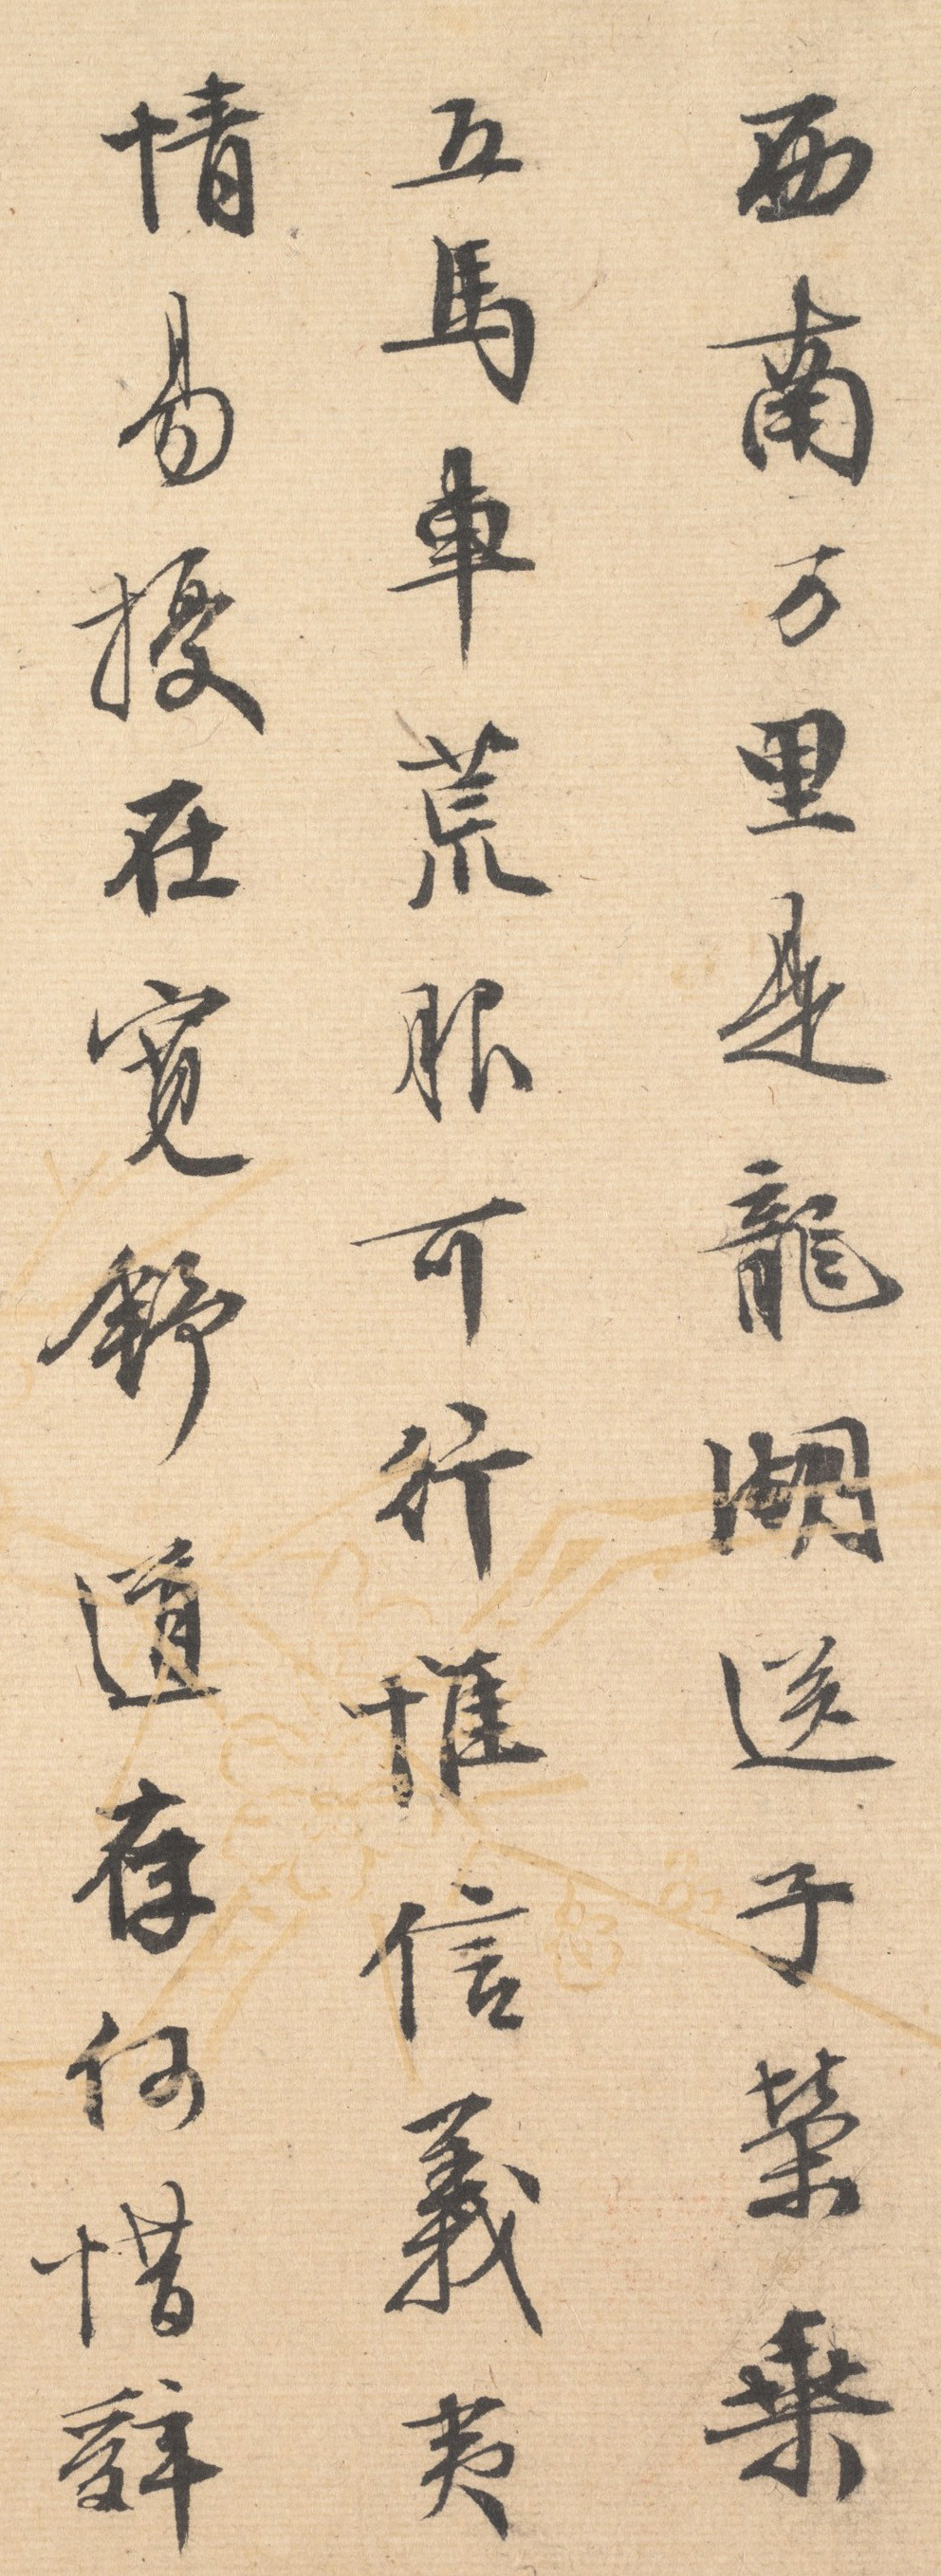 西南万里是龍湖送子榮乘
五馬車荒服可行惟信義夷
情易擾在寬舒道存何惜辭